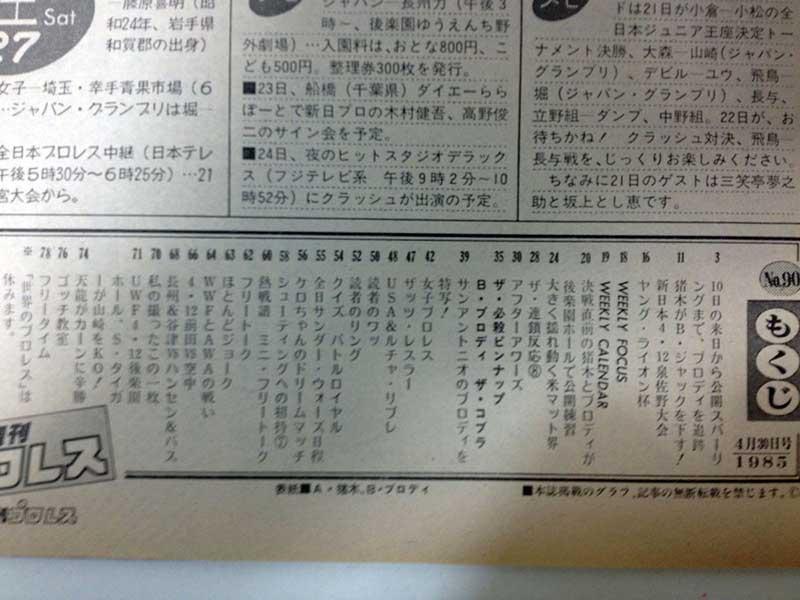 土
Sat
27
―藤原喜明(昭
和24年、岩手県
和賀郡の出身)
女子―埼玉・幸手青果市場(6
…ジャパン・グランプリは堀―
全日本プロレス中継(日本テレ
午後5時30分〜6時25分)…21
宮大会から。
ジャパン―長州力(午後3
時〜、後楽園ゆうえんち野
外劇場)…入園料は、おとな800円、こ
ども500円。整理券300枚を発行。
■23日、船橋(千葉県)ダイエーらら
ぽーとで新日プロの木村健吾、高野俊
二のサイン会を予定。
■24日、夜のヒットスタジオデラック
ス(フジテレビ系 午後9時2分〜10
時52分)にクラッシュが出演の予定。
ドは21日が小倉―小松の全
日本ジュニア王座決定トー
ナメント決勝、大森―山崎(ジャパン・
グランプリ)、デビル―ユウ、飛鳥―
堀(ジャパン・グランプリ)、長与、
立野組―ダンプ、中野組。22日が、お
待ちかね! クラッシュ対決、飛鳥―
長与戦を、じっくりお楽しみください。
ちなみに21日のゲストは三笑亭夢之
助と坂上とし恵です。
No.90
もくじ
4月30日号
1985
3 10日の来日から公開スパーリ
ングまで、ブロディを追跡
11 猪木がB・ジャックを下す!
新日本4・12泉佐野大会
16 ヤング・ライオン杯
18 WEEKLY FOCUS
19 WEEKLY CALENDAR
20 決戦直前の猪木とブロディが
後楽園ホールで公開練習
24 大きく揺れ動く米マット界
28 ザ・連鎖反応⑧
30 アフターアワーズ
35 ザ・必殺ピンナップ
B・ブロディ ザ・コブラ
39 サンアントニオのブロディを
特写!
42 女子プロレス
47 ザッツ・レスラー
48 USA&ルチャ・リブレ
50 読者のワッ
52 読者のリング
54 クイズ バトルロイヤル
55 全日サンダー・ウォーズ日程
56 ケロちゃんのドリームマッチ
58 シューティングへの招待⑦
60 熱戦譜 ミニ・フリートーク
62 フリートーク
63 ほとんどジョーク
64 WWFとAWAの戦い
66 4・12前田VS空中
68 長州&谷津VSハンセン&バス
70 私の撮ったこの一枚
71 UWF4・12後楽園
ホール、S・タイガ
ーが山崎をKO!
74 天龍がカーンに辛勝
76 ゴッチ教室
78 フリータイム
※「世界のプロレス」は
休みます。
週刊
プロレス
プロレス
表紙■A・猪木、B・ブロディ
■本誌掲載のグラフ、記事の無断転載を禁じます。©